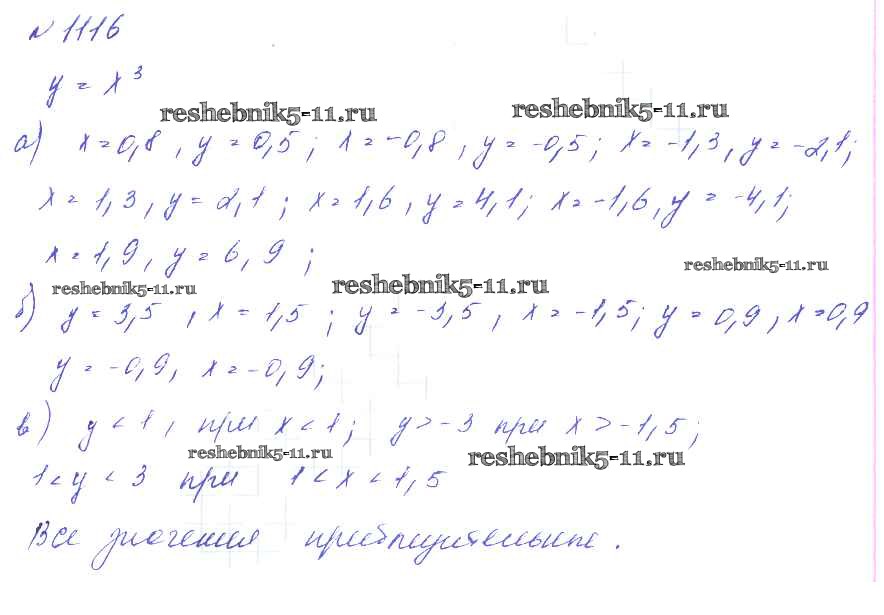 № 1116
y = x³
reshebnik5-11.ru reshebnik5-11.ru
а) x = 0,8 , y = 0,5 ; x = -0,8 , y = -0,5 ; x = -1,3 , y = -2,1 ;
x = 1,3 , y = 2,1 ; x = 1,6 , y = 4,1 ; x = -1,6 , y = -4,1 ;
x = 1,9 , y = 6,9 ;
reshebnik5-11.ru reshebnik5-11.ru reshebnik5-11.ru
б) y = 3,5 , x = 1,5 ; y = -3,5 , x = -1,5 ; y = 0,9 , x = 0,9
y = -0,9 , x = -0,9 ;
в) y < 1 , при x < 1 ; y > -3 при x > -1,5 ;
reshebnik5-11.ru reshebnik5-11.ru
1 < y < 3 при 1 < x < 1,5
Все значения приблизительные .